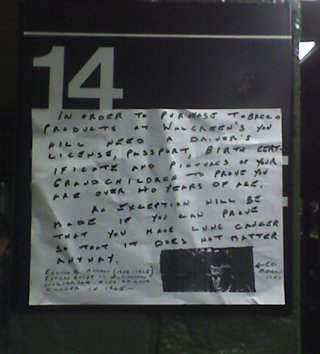 14
IN ORDER TO PURCHASE TOBACCO
PRODUCTS AT WALGREEN'S YOU
WILL NEED A DRIVER'S
LICENSE, PASSPORT, BIRTH CERT-
IFICATE AND PICTURES OF YOUR
GRANDCHILDREN TO PROVE YOU
ARE OVER 40 YEARS OF AGE.
AN EXCEPTION WILL BE
MADE IF YOU CAN PROVE
THAT YOU HAVE LUNG CANCER
SO THAT IT DOES NOT MATTER
ANYWAY.
EDWARD R. MURROW (1908-1965)
OF
CANCER IN 1965